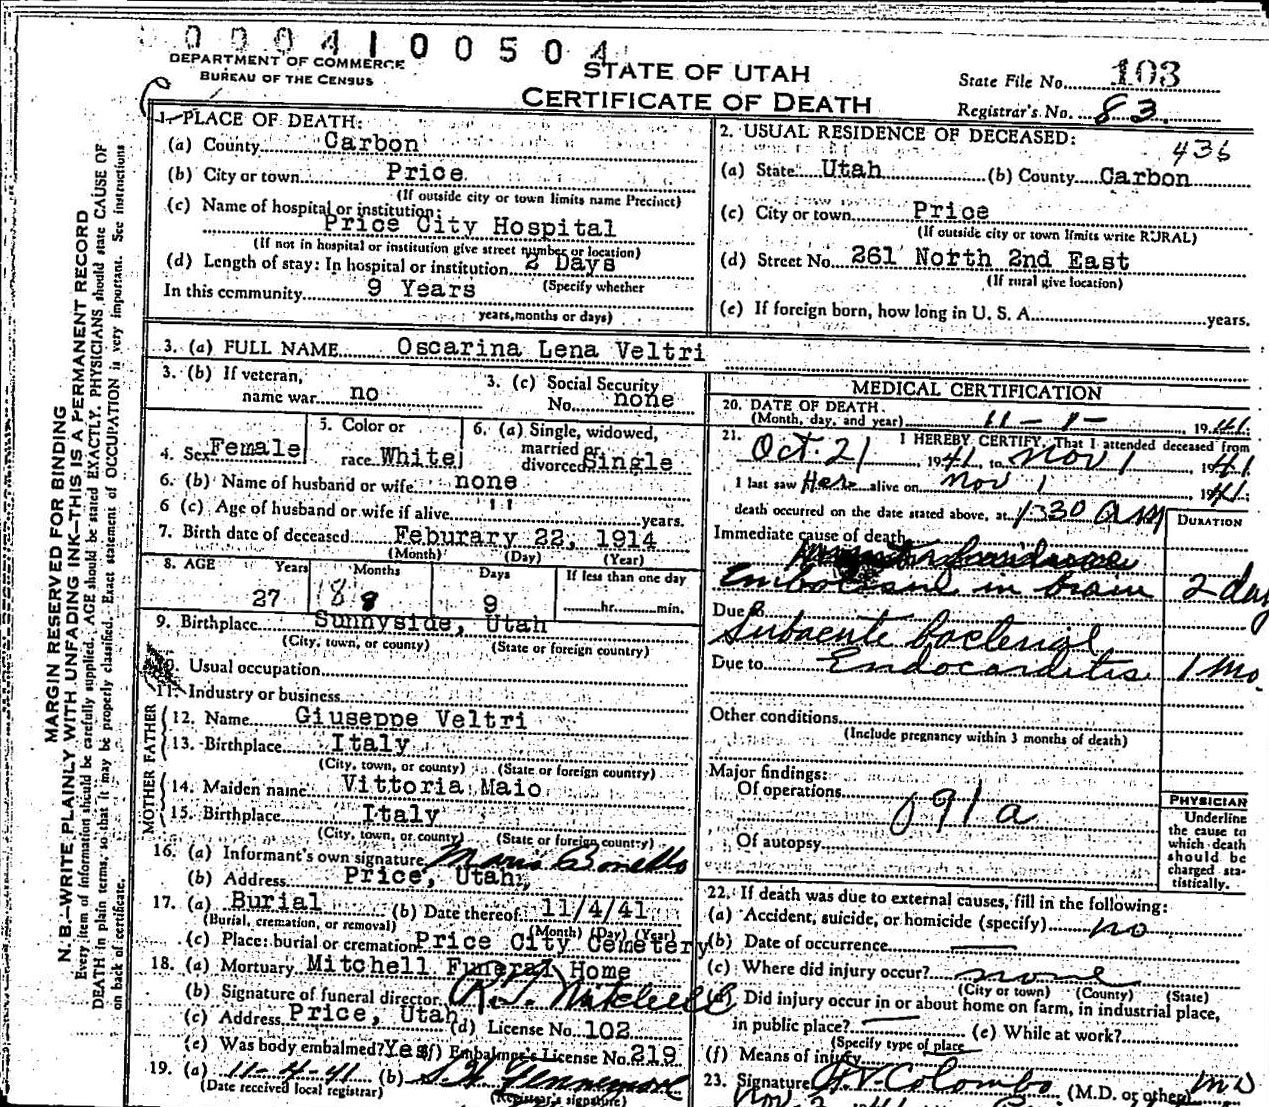 0004100504
DEPARTMENT OF COMMERCE
BUREAU OF THE CENSUS
STATE OF UTAH
CERTIFICATE OF DEATH
State File No. 103
Registrar's No. 83.
MARGIN RESERVED FOR BINDING
N. B.—WRITE PLAINLY WITH UNFADING INK—THIS IS A PERMANENT RECORD
Every item of information should be carefully supplied. AGE should be stated EXACTLY. PHYSICIANS should state CAUSE OF
DEATH in plain terms, so that it may be properly classified. Exact statement of OCCUPATION is very important. See instructions
on back of certificate.
1. PLACE OF DEATH:
(a) County Carbon
(b) City or town Price
(If outside city or town limits name Precinct)
(c) Name of hospital or institution:
Price City Hospital
(If not in hospital or institution give street number or location)
(d) Length of stay: In hospital or institution 2 Days
(Specify whether
In this community 9 Years
years, months or days)
2. USUAL RESIDENCE OF DECEASED:
436
(a) State Utah (b) County Carbon
(c) City or town Price
(If outside city or town limits write RURAL)
(d) Street No. 261 North 2nd East
(If rural give location)
(e) If foreign born, how long in U. S. A. years.
3. (a) FULL NAME Oscarina Lena Veltri
3. (b) If veteran,
name war no
3. (c) Social Security
No. none
4. Sex Female
5. Color or
race White
6. (a) Single, widowed,
married or
divorced Single
6. (b) Name of husband or wife none
6 (c) Age of husband or wife if alive " years.
7. Birth date of deceased Feburary 22, 1914
(Month) (Day) (Year)
8. AGE Years Months Days If less than one day
27 8 9 hr. min.
9. Birthplace Sunnyside, Utah
(City, town, or county) (State or foreign country)
10. Usual occupation
11. Industry or business
FATHER
12. Name Giuseppe Veltri
13. Birthplace Italy
(City, town, or county) (State or foreign country)
MOTHER
14. Maiden name Vittoria Maio
15. Birthplace Italy
(City, town, or county) (State or foreign country)
16. (a) Informant's own signature Marie Bonello
(b) Address Price, Utah,
17. (a) Burial (b) Date thereof 11/4/41
(Burial, cremation, or removal) (Month) (Day) (Year)
(c) Place: burial or cremation Price City Cemetery
18. (a) Mortuary Mitchell Funeral Home
(b) Signature of funeral director R. J. Mitchell
(c) Address Price, Utah (d) License No. 102
(e) Was body embalmed? Yes (f) Embalmer's License No. 219
19. (a) 11-4-41 (b)
(Date received local registrar) (Registrar's signature)
MEDICAL CERTIFICATION
20. DATE OF DEATH
(Month, day, and year) 11-1- 1941.
21. I HEREBY CERTIFY, That I attended deceased from
Oct. 21, 1941, to Nov 1, 1941
I last saw Her alive on Nov 1, 1941;
death occurred on the date stated above, at 1:30 AM
DURATION
Immediate cause of death
Embolism in brain 2 day
Due to
Subacute bacterial
Due to Endocarditis 1 mo.
Other conditions
(Include pregnancy within 3 months of death)
Major findings:
Of operations
091a
Of autopsy
PHYSICIAN
Underline
the cause to
which death
should be
charged sta-
tistically.
22. If death was due to external causes, fill in the following:
(a) Accident, suicide, or homicide (specify) no
(b) Date of occurrence —
(c) Where did injury occur? none
(City or town) (County) (State)
(d) Did injury occur in or about home on farm, in industrial place,
in public place? — (e) While at work?
(Specify type of place)
(f) Means of injury
23. Signature Colombo (M.D. or other) MD